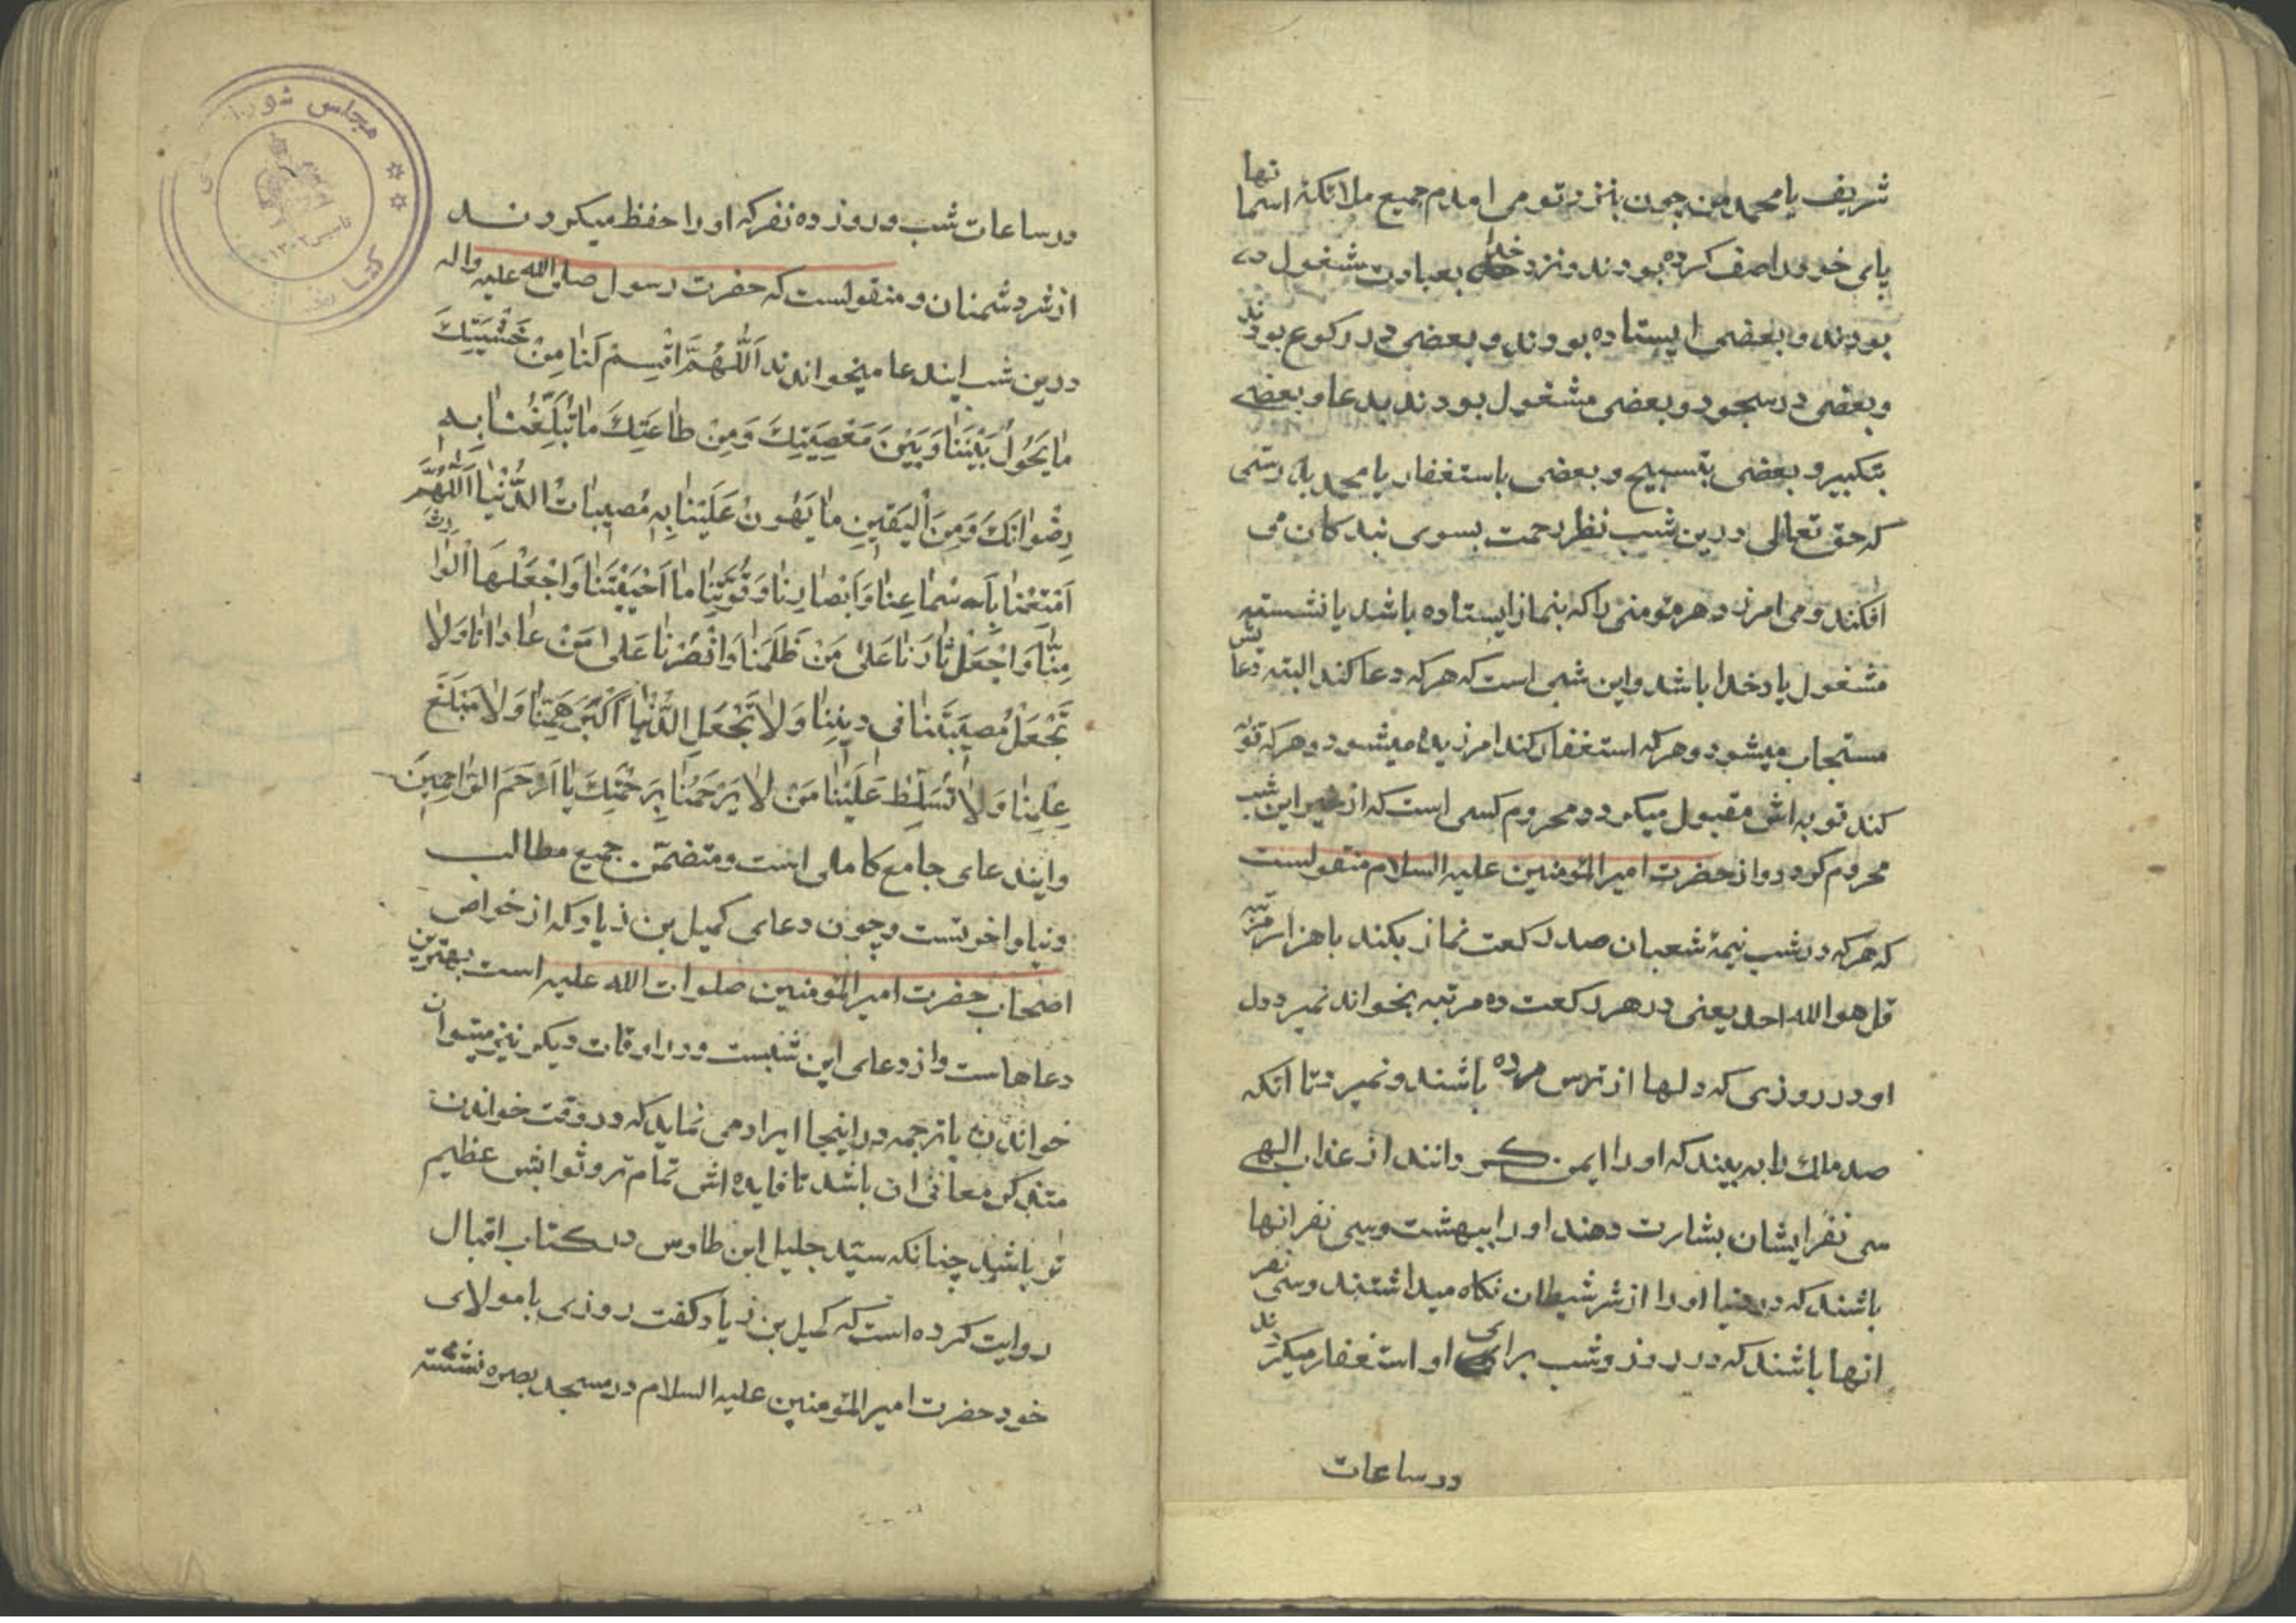 شریف یا محمد من چون بنزد تو می امدم جمیع ملائکهٔ اسمانها
پای خود را صف کرده بودند و نزد خدا بعبادت مشغول
بودند و بعضی ایستاده بودند و بعضی در رکوع بودند
و بعضی در سجود و بعضی مشغول بودند بدعا و بعضی
بتکبیر و بعضی بتسبیح و بعضی باستغفار یا محمد بدرستی
که حق تعالی درین شب نظر رحمت بسوی بندکان می
افکند و می امرزد هر مؤمنی را که بنماز ایستاده باشد یا نشسته
مشغول یاد خدا باشد و این شبی است که هر که دعا کند البته دعایش
مستجاب میشود و هر که استغفار کند امرزیده میشود و هر که توبه
کند توبه اش مقبول میکردد و محروم کسی است که از خیر این شب
محروم کردد و از حضرت امیر المؤمنین علیه السلام منقولست
که هر که در شب نیمهٔ شعبان صد رکعت نماز بکند با هزار مرتبه
قل هو الله احد یعنی در هر رکعت ده مرتبه بخواند نمیرد دل
او در روزی که دلها از ترس مرده باشند و نمیرد تا انکه
صد ملك را به بیند که او را ایمن کردانند از عذاب الهی
سی نفر ایشان بشارت دهند او را ببهشت و سی نفر انها
باشند که در دنیا او را از شر شیطان نکاه میداشتند و سی نفر
انها باشند که در روز و شب برای او استغفار میکردند
در ساعات
در ساعات شب و روز ده نفر که او را حفظ میکردند
از شر دشمنان و منقولست که حضرت رسول صلی الله علیه واله
درین شب ایندعا میخواندند اَللّٰهُمَّ اقْسِمْ لَنٰا مِنْ خَشْیَتِكَ
مٰا یَحُوْلُ بَیْنَنٰا وَ بَیْنَ مَعْصِیَتِكَ وَ مِنْ طٰاعَتِكَ مٰا تُبَلِّغُنٰا بِهِ
رِضْوٰانَكَ وَ مِنَ الْیَقینِ مٰا یَهُونُ عَلَیْنٰا بِهِ مُصیبٰاتُ الدُّنْیٰا اَللّٰهُمَّ
اَمْتِعْنٰا بِاَسْمٰاعِنٰا وَ اَبْصٰارِنٰا وَ قُوَّتِنٰا مٰا اَحْیَیْتَنٰا وَ اجْعَلْهَا الْوٰارِثَ
مِنّٰا وَ اجْعَلْ ثٰارَنٰا عَلیٰ مَنْ ظَلَمَنٰا وَ انْصُرْنٰا عَلیٰ مَنْ عٰادٰانٰا وَ لاٰ
تَجْعَلْ مُصیبَتَنٰا فی دینِنٰا وَ لاٰ تَجْعَلِ الدُّنْیٰا اَکْبَرَ هَمِّنٰا وَ لاٰ مَبْلَغَ
عِلْمِنٰا وَ لاٰ تُسَلِّطْ عَلَیْنٰا مَنْ لاٰ یَرْحَمُنٰا بِرَحْمَتِكَ یٰا اَرْحَمَ الرّٰاحِمینَ
و ایندعای جامع کاملی است و متضمّن جمیع مطالب
دنیا و اخرتست و چون دعای کمیل بن زیاد که از خواص
اصحاب حضرت امیر المؤمنین صلوات الله علیه است بهترین
دعاهاست و از دعای این شبست و در اوقات دیکر نیز میتوان
خواندن با ترجمه در اینجا ایراد می نماید که در وقت خواندن
متذکر معانی ان باشد تا فایده اش تمام تر و ثوابش عظیم
تر باشد چنانکه سیّد جلیل ابن طاوس در کتاب اقبال
روایت کرده است که کمیل بن زیاد کفت روزی با مولای
خود حضرت امیر المؤمنین علیه السلام در مسجد بصره نشسته
مجلس شورا
کتا